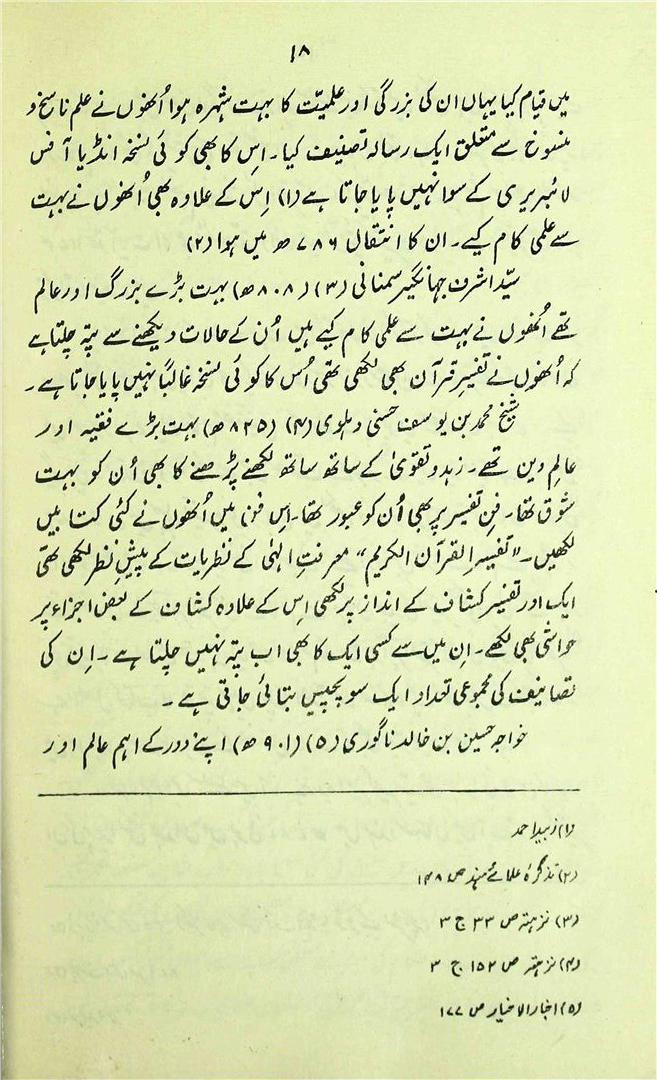 ۱۸
میں قیام کیا یہاں ان کی بزرگی اور علمیّت کا بہت شہرہ ہوا اُنھوں نے علم ناسخ و
منسوخ سے متعلق ایک رسالہ تصنیف کیا۔ اِس کا بھی کوئی نسخہ انڈیا آفس
لائبریری کے سوا نہیں پایا جاتا ہے (۱) اِس کے علاوہ بھی اُنھوں نے بہت
سے علمی کام کیے۔ ان کا انتقال ۷۸۶ھ میں ہوا (۲)
سیّد اشرف جہانگیر سمنانی (۳) (۸۰۸ھ) بہت بڑے بزرگ اور عالم
تھے اُنھوں نے بہت سے علمی کام کیے ہیں اُن کے حالات دیکھنے سے پتہ چلتا ہے
کہ اُنھوں نے تفسیرِ قرآن بھی لکھی تھی اُس کا کوئی نسخہ غالباً نہیں پایا جاتا ہے۔
شیخ محمد بن یوسف حسنی دہلوی (۴) (۸۲۵ھ) بہت بڑے فقیہ اور
عالمِ دین تھے۔ زہد و تقویٰ کے ساتھ ساتھ لکھنے پڑھنے کا بھی اُن کو بہت
شوق تھا۔ فنِ تفسیر پر بھی اُن کو عبور تھا۔ اِس فن میں اُنھوں نے کئی کتابیں
لکھیں۔ "تفسیر القرآن الکریم" معرفتِ الہٰی کے نظریات کے پیشِ نظر لکھی تھی
ایک اور تفسیر کشاف کے انداز پر لکھی اس کے علاوہ کشاف کے بعض اجزاء پر
حواشی بھی لکھے۔ اِن میں سے کسی ایک کا بھی اب پتہ نہیں چلتا ہے۔ اِن کی
تصانیف کی مجموعی تعداد ایک سو پچیس بتائی جاتی ہے۔
خواجہ حسین بن خالد ناگوری (۵) (۹۰۱ھ) اپنے دور کے اہم عالم اور
(۱) زبید احمد
(۲) تذکرۂ علمائے ہند ص ۱۴۸
(۳) نزہتہ ص ۳۳ ج ۳
(۴) نزہتہ ص ۱۵۲ ج ۳
(۵) اخبار الاخیار ص ۱۷۷